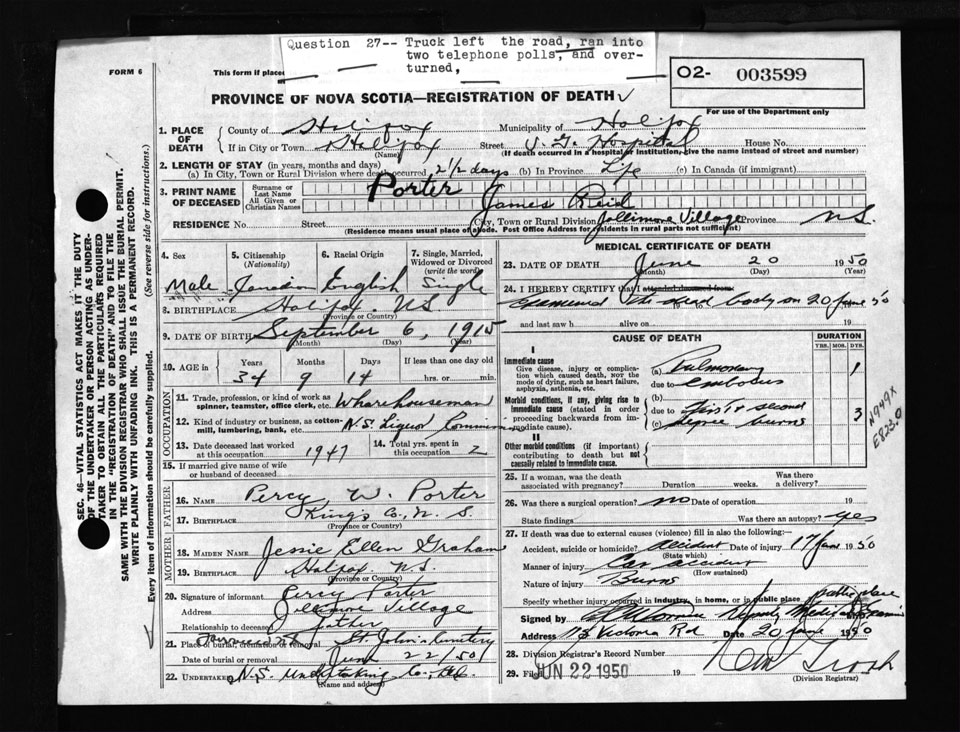 Question 27-- Truck left the road, ran into
two telephone polls, and over-
turned,
FORM 6
This form if place
O2- 003599
For use of the Department only
PROVINCE OF NOVA SCOTIA—REGISTRATION OF DEATH
1. PLACE OF DEATH
County of Halifax Municipality of Halifax
If in City or Town Halifax Street V. G. Hospital House No.
(Name) (If death occurred in a hospital or institution, give the name instead of street and number)
2. LENGTH OF STAY (in years, months and days)
(a) In City, Town or Rural Division where death occurred 2 1/2 days (b) In Province Life (c) In Canada (if immigrant)
3. PRINT NAME OF DECEASED
Surname or Last Name Porter
All Given or Christian Names James Reid
RESIDENCE No. Street City, Town or Rural Division Jollimore Village Province N.S.
(Residence means usual place of abode. Post Office Address for residents in rural parts not sufficient)
4. Sex Male
5. Citizenship (Nationality) Canadian
6. Racial Origin English
7. Single, Married, Widowed or Divorced (write the word) Single
8. BIRTHPLACE Halifax N.S.
(Province or Country)
9. DATE OF BIRTH September 6, 1915
(Month) (Day) (Year)
10. AGE in Years Months Days If less than one day old
34 9 14 hrs. or min.
OCCUPATION
11. Trade, profession, or kind of work as spinner, teamster, office clerk, etc. Wharehouseman
12. Kind of industry or business, as cotton-mill, lumbering, bank, etc. N.S. Liquor Commission
13. Date deceased last worked at this occupation 1947
14. Total yrs. spent in this occupation 2
15. If married give name of wife or husband of deceased
FATHER
16. NAME Percy W. Porter
17. BIRTHPLACE King's Co. N. S.
(Province or Country)
MOTHER
18. MAIDEN NAME Jessie Ellen Graham
19. BIRTHPLACE Halifax N.S.
(Province or Country)
20. Signature of informant Percy Porter
Address Jollimore Village
Relationship to deceased father
21. Place of burial, cremation or removal St. John's Cemetery
Date of burial or removal June 22/50
22. UNDERTAKER N.S. Undertaking Co.
(Name and address)
MEDICAL CERTIFICATE OF DEATH
23. DATE OF DEATH June 20 1950
(Month) (Day) (Year)
24. I HEREBY CERTIFY that I attended deceased from
Examined the dead body on 20 June 50
and last saw h alive on 19
CAUSE OF DEATH DURATION
YRS. MOS. DYS.
I
Immediate cause
Give disease, injury or complication which caused death, nor the mode of dying, such as heart failure, asphyxia, asthenia, etc.
(a) Pulmonary 1
due to Embolus
Morbid conditions, if any, giving rise to immediate cause (stated in order proceeding backwards from immediate cause)
(b)
due to First & second
(c) degree burns 3
II
Other morbid conditions (if important) contributing to death but not causally related to immediate cause.
N949X
E823.0
25. If a woman, was the death associated with pregnancy? Duration weeks. Was there a delivery?
26. Was there a surgical operation? no Date of operation 19
State findings Was there an autopsy? yes
27. If death was due to external causes (violence) fill in also the following:—
Accident, suicide or homicide? Accident Date of injury 17 June 1950
(State which)
Manner of injury Car accident
(How sustained)
Nature of injury Burns
Specify whether injury occurred in industry, in home, or in public place public place
Signed by Deputy Medical Examiner
Address Victoria Rd Date 20 June 1950
28. Division Registrar's Record Number
29. Filed JUN 22 1950 19
(Division Registrar)
SEC. 46—VITAL STATISTICS ACT MAKES IT THE DUTY
OF THE UNDERTAKER OR PERSON ACTING AS UNDERTAKER TO OBTAIN ALL THE PARTICULARS REQUIRED
IN THE "REGISTRATION OF DEATH" AND TO FILE THE
SAME WITH THE DIVISION REGISTRAR WHO SHALL ISSUE THE BURIAL PERMIT.
WRITE PLAINLY WITH UNFADING INK. THIS IS A PERMANENT RECORD.
Every item of information should be carefully supplied. (See reverse side for instructions.)